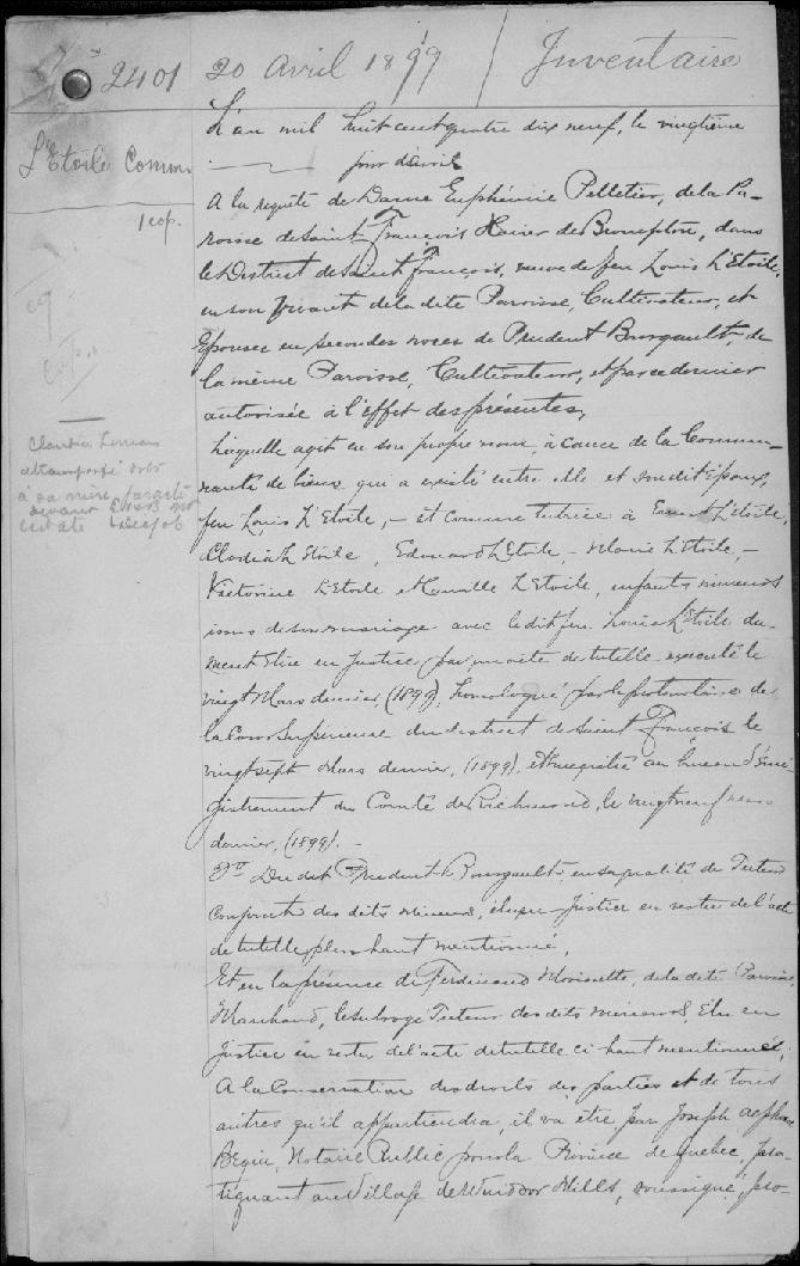 2401 20 Avril 1899 / Inventaire
L'Etoile Commu
1 cop.
L'an mil huit cent quatre dix neuf, le vingtième
jour d'avril
A la requête de Dame Euphémie Pelletier, de la Pa-
roisse de Saint François Xavier de Brompton, dans
le District de Saint François, veuve de feu Louis L'Etoile,
en son vivant de la dite Paroisse, Cultivateur, et
Epouse en secondes noces de Prudent Bourgault, de
la même Paroisse, Cultivateur, et par ce dernier
autorisée à l'effet des présentes,
Laquelle agit en son propre nom, à cause de la Commu-
nauté de biens qui a existé entre elle et son dit Epoux,
feu Louis L'Etoile, - et comme tutrice à L'Etoile,
Clodia L'Etoile, Edouard L'Etoile, - Marie L'Etoile, -
Victorine L'Etoile et L'Etoile, enfants mineurs
issus de son mariage avec le dit feu Louis L'Etoile du-
ment élue en Justice, par un acte de tutelle exécuté le
vingt Mars dernier, (1899), homologué par le protonotaire de
la Cour Supérieure du district de Saint François le
vingt sept Mars dernier, (1899), et enregistré au bureau d'enré-
gistrement du Comté de Richmond, le vingt neuf mars
dernier, (1899). -
Du dit Prudent Bourgault, en sa qualité de Tuteur
conjoint des dits mineurs, élu en Justice en vertu de l'acte
de tutelle plus haut mentionné,
Et en la présence de Ferdinand Morissette, de la dite Paroisse,
Marchand, le subrogé Tuteur des dits mineurs, Elu en
justice en vertu de l'acte de tutelle ci haut mentionné,
A la Conservation des droits des parties et de tous
autres qu'il appartiendra, il va être par Joseph Alphonse
Bégin, Notaire Public pour la Province de Quebec, pra-
tiquant au Village de Windsor Mills, soussigné, pro-
Claudia
a transporté
à sa mère
devant